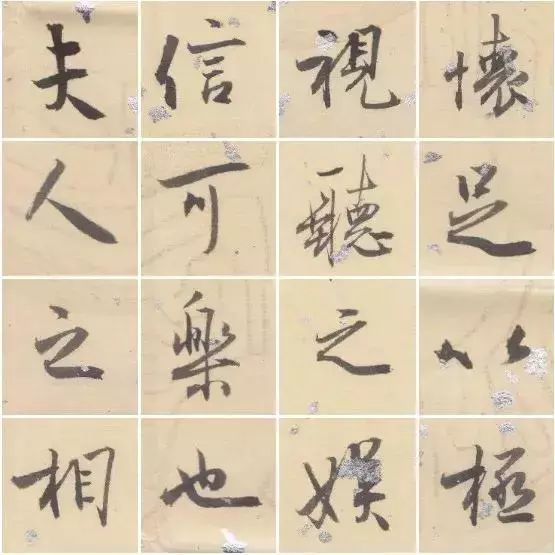 懷足以極
視聽之娛
信可樂也
夫人之相